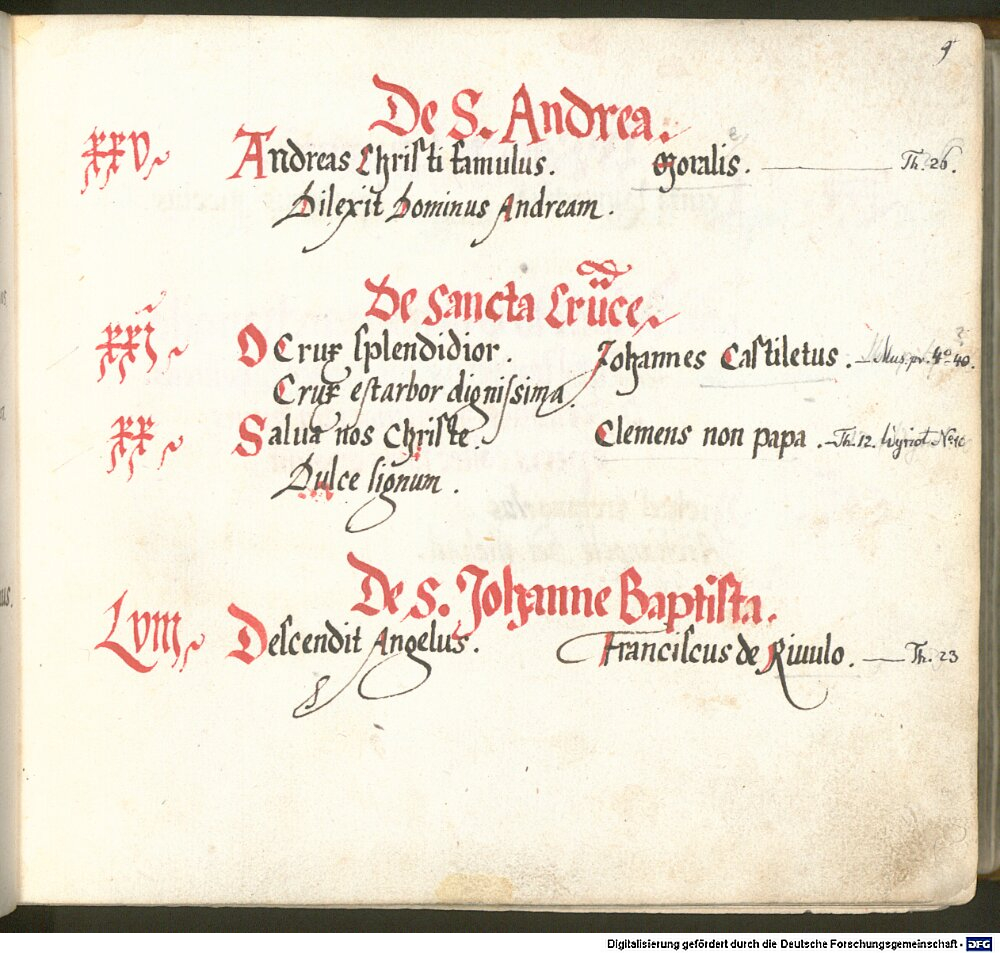 9
De S. Andrea.
XXV Andreas Christi famulus. Moralis. Th. 26.
Dilexit Dominus Andream.
De Sancta Cruce.
XXI O Crux splendidior. Johannes Castiletus. Mus. pr. 4° 40.
Crux est arbor dignissima.
XX Salua nos Christe. Clemens non papa. Th. 12.
Dulce lignum.
De S. Johanne Baptista.
LVIII Descendit Angelus. Franciscus de Riuulo. Th. 23
Digitalisierung gefördert durch die Deutsche Forschungsgemeinschaft - DFG